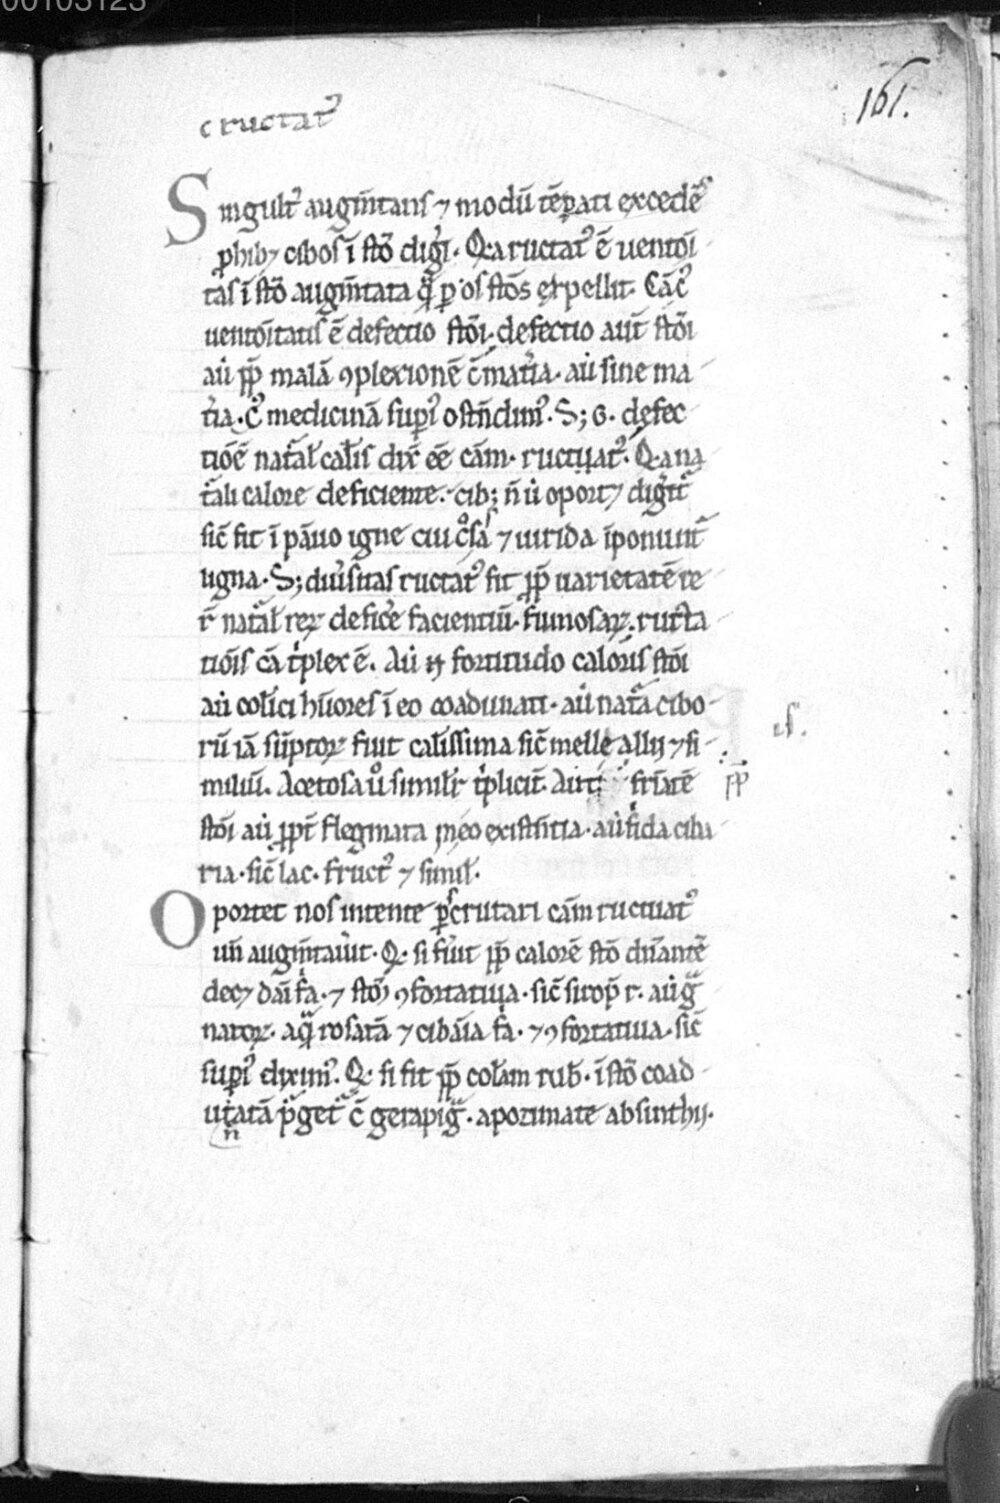 00103123
161.
eructatꝰ
Singultꝰ augm̄tatis ⁊ modū tēꝑati excedēs
ꝓhibꝫ cibos ī sto᷑ digi. Q͛a ructatꝰ ē uentoı̄
tas ī sto᷑ augm̄tata q̄ ꝑ os stōs expellit. Cāꝰ
uentoı̄tatis ē defectio stōı. defectio aut̄ stōı
aū ꝓp̄ malā ꝯplexionē c̄ mat̄ia. aū sine ma
t̄ia. Cꝰ medicinā supiꝰ ostn̄dimꝰ. Sꝫ G. defec
tiōē nat̄al̄ cal̄is dix̄ eē cām ructuatꝰ. Q͛a na
t̄ali calore deficiente. cibꝫ n̄ ū oportꝫ digit᷑
sic̄ fit ī pāuo igne cui ġsa ⁊ uirida īponunt᷑
ligna. Sꝫ diūsitas ructatꝰ fit ꝓp̄ uarietatē re
r̄ nat̄al̄ reꝝ deficē facientiū. fumosaꝝ. ructa
tiōis cā t̍plex ē. Aū fortitudo caloris stōı
aū col̄ici hūores ī eo coadunati. aū nat̄a cibo
rū iā sūptoꝝ fiut calissima sic̄ melle allij ⁊ si
miliū. Acetosa u̇ similit̄ t̍plicit̄. Aut
is.
ꝓp̄
stōı aū ꝓpt̄ flegmata in eo existn̄tia. aū fͥda ciba
ria. sic̄ lac. fructꝰ ⁊ simil̄.
Oportet nos intente ꝑscrutari cām ructuatꝰ
un̄ augm̄tauit. Q͛ si fūit ꝓp̄ calorē sto᷑ dn̄antē
decꝫ daı̄ fͥa. ⁊ stōı ꝯfortatiua. sic̄ sirop̄ r. aū g̃
natoꝝ. aq̄ rosatā ⁊ cibāia fͥa. ⁊ ꝯfortatiua. sic̄
supiꝰ diximꝰ. Q͛ si fit ꝓp̄ col̄am rub̄. ī stō coad
u̍atā p̍get᷑ c̄ gerapig̃. apozimate absinthij.
n̄